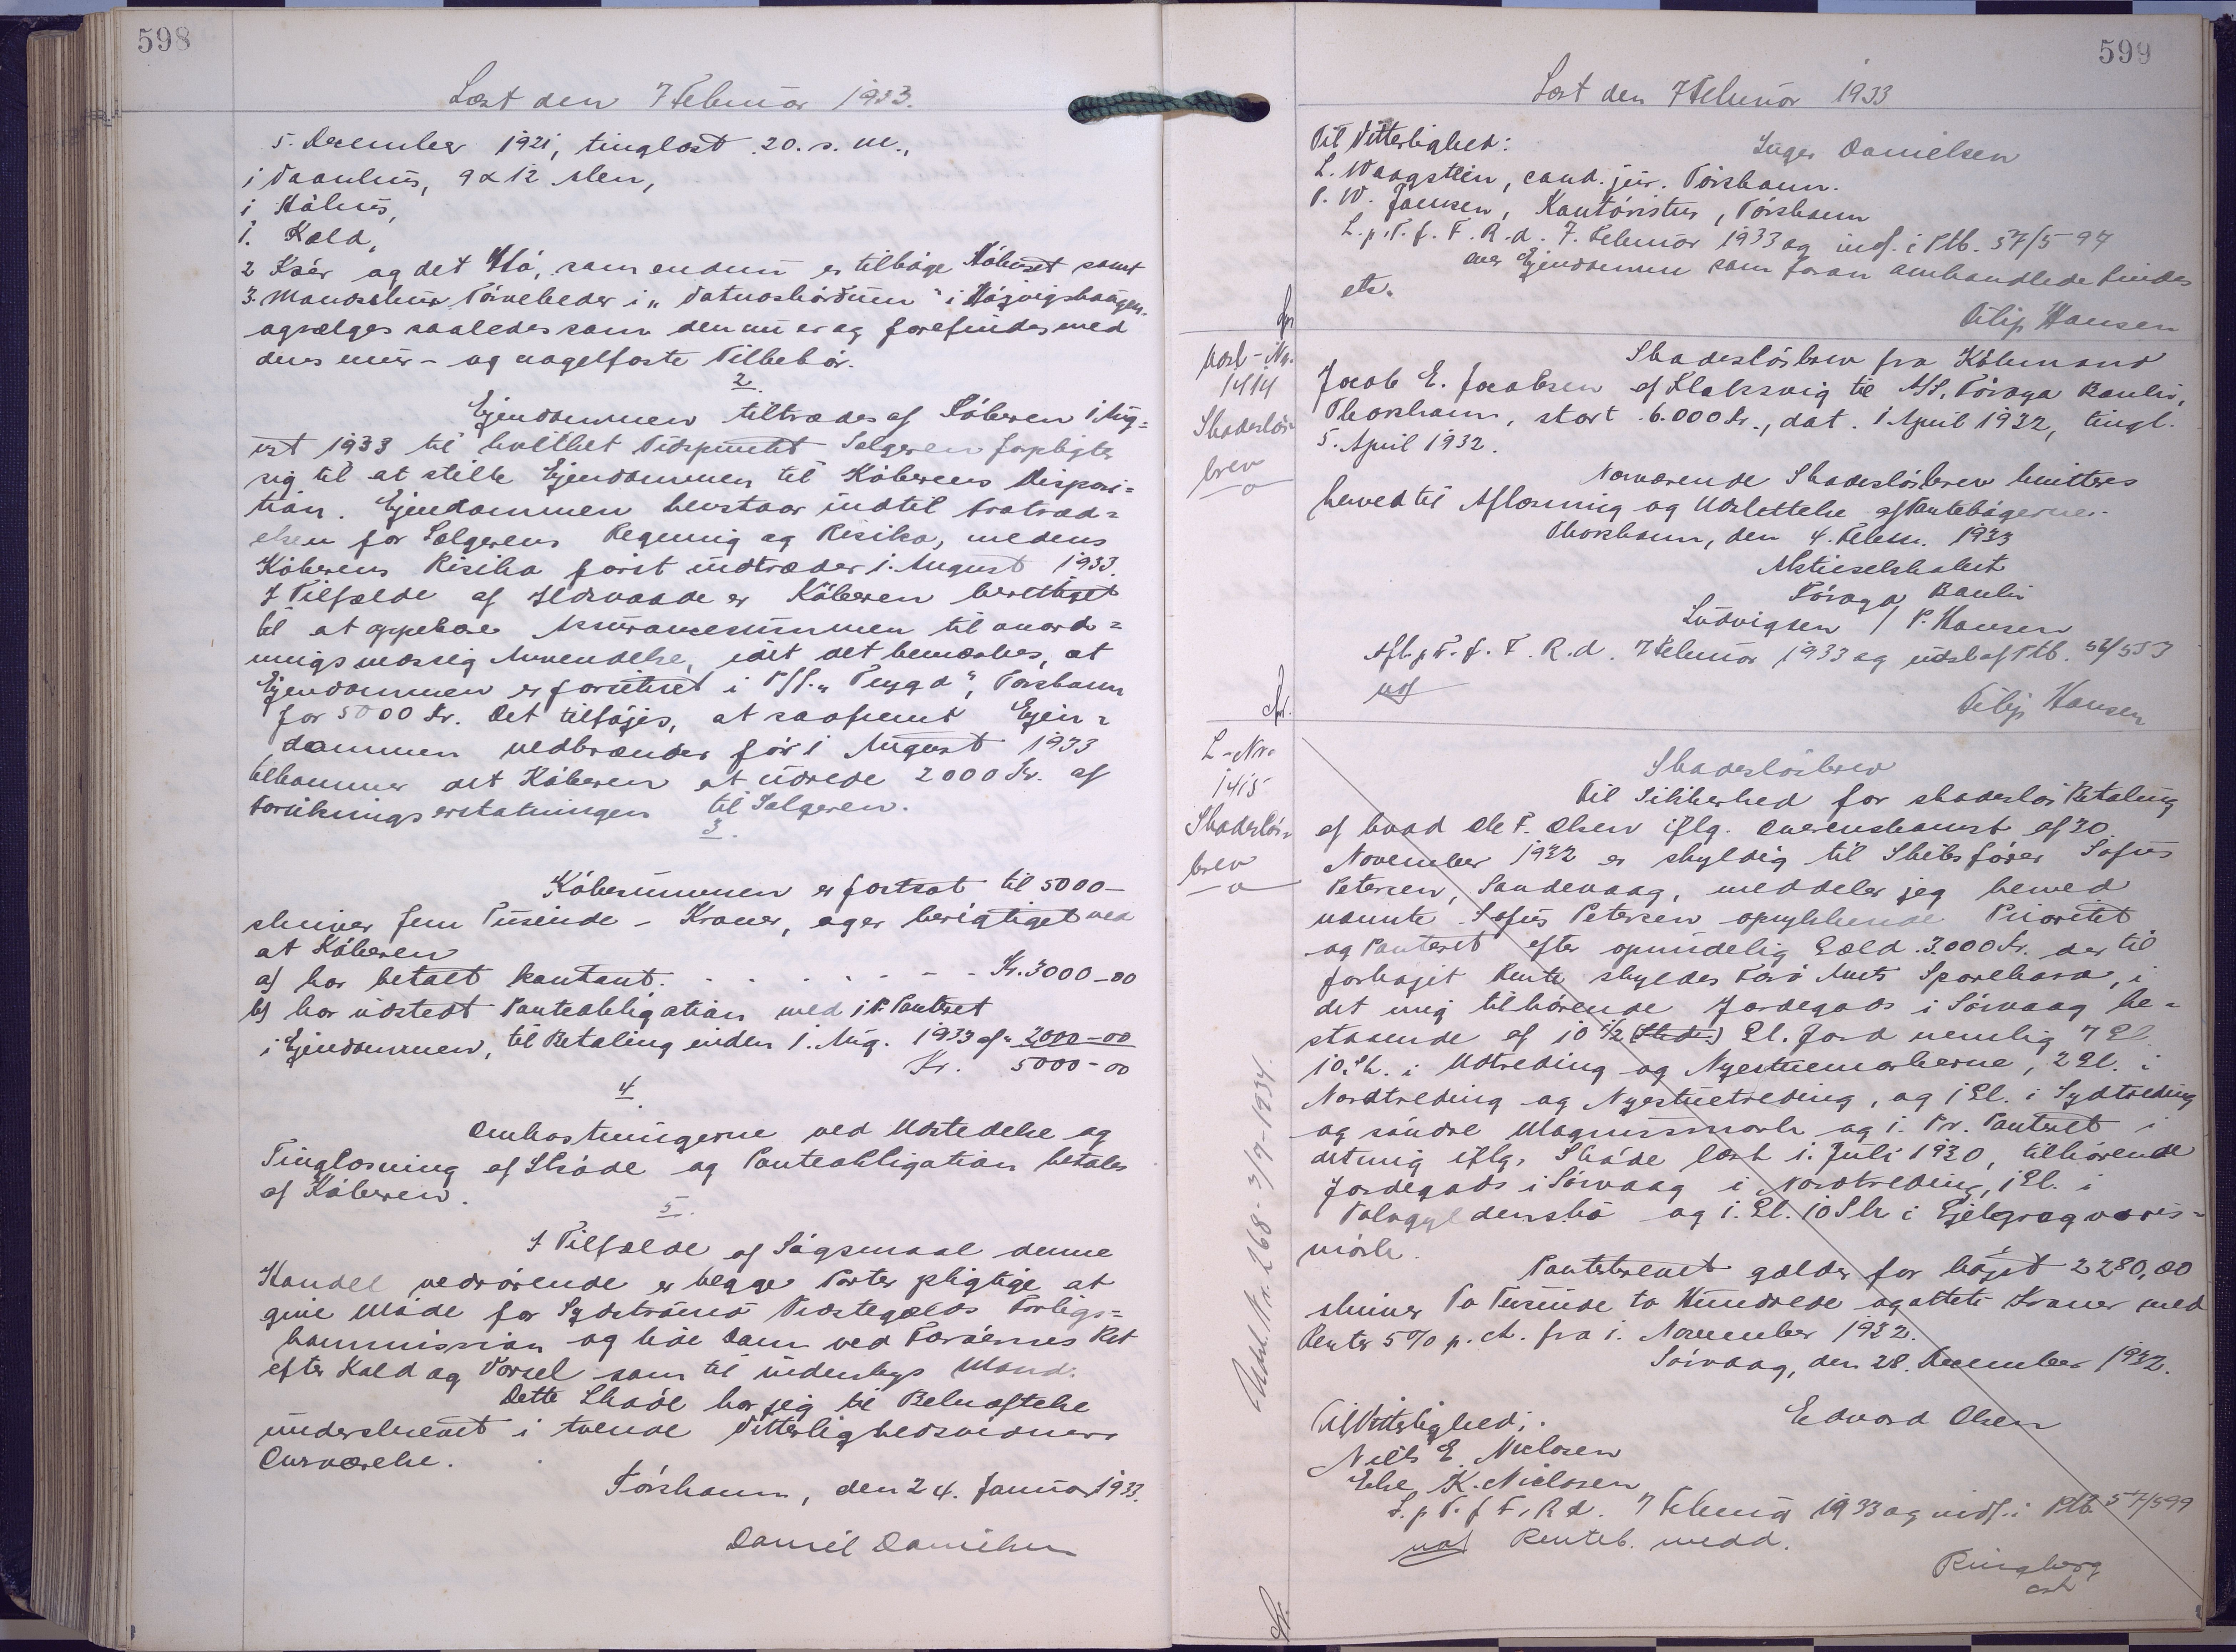 598
Læst den 7 Februar 1933.
5. December 1921, tinglæst 20. s. M.,
1 Vaanhus, 9 x 12 Alen,
1 Kohus,
1. Kæld,
2 Køer og det Hø, som endnu er tilbage samt
3. Mandsskur Tørveheder i "
og sælges saaledes som den nu er og forefindes med
dens mur- og nagelfaste Tilbehør.
2.
Ejendommen tiltrædes af Køberen 1 Aug=
ust 1933 til hvilket Tidspunkt Sælgeren forpligter
sig til at stille Ejendommen til Køberens Disposi=
tion. Ejendommen henstaar indtil Fratræd=
elsen for Sælgerens Regning og Risiko, medens
Køberens Risiko først indtræder 1. August 1933.
I Tilfælde af Ildsvaade er Køberen berettiget
til at oppebære Assurancesummen til anord=
ningsmæssig Anvendelse, idet det bemærkes, at
Ejendommen er forsikret i P/f. "Trygd", Torshavn
for 5000 Kr. Det tilføjes, at saafremt Ejen=
dommen nedbrænder før 1 August 1933
tilkommer det Køberen at udrede 2000 Kr. af
Forsikringserstatningen til Sælgeren.
3.
Købesummen er fortsat til 5000-
skriver fem Tusinde - Kroner, og er berigtiget ved
at Køberen
a) har betalt kontant. Kr. 3000-00
b) har udstedt Panteobligation med 1 Pr. Panteret
i Ejendommen, til Betaling inden 1. Aug. 1933 af " 2000-00
Kr. 5000-00
4.
Omkostningerne ved Udstedelse og
Tinglæsning af Skøde og Panteobligation betales
af Køberen.
5.
I Tilfælde af Søgsmaal denne
Handel vedrørende er begge Parter pligtige at
give Møde for Sydstrømø Vidstegælds Forligs=
kommission og lide Dom ved Færøernes Ret
efter Kald og Varsel som til indenbys Mand.
Dette Skøde har jeg til Bekræftelse
underskrevet i tvende Vitterlighedsvidners
Overværelse.
Tórshavn, den 24. Januar 1933.
Daniel Danielsen
599
Læst den 7 Februar 1933
Til Vitterlighed:
Inger Danielsen
L. Waagstein, cand. jur. Tórshavn.
P. W. Joensen, Kontorister, Tórshavn
L. p. T. f. F. R. d. 7. Februar 1933 og indf. i Ptb. 57/597
over Ejendommen som foran omhandlede findes
etc.
Filip Hansen
Lbr
Løb-Nr.
1414
Skadesløs-
brev
Skadesløsbrev fra Købmand
Jacob E. Jacobsen af Klaksvig til A/S. Føroya Banki,
Thorshavn, stort 6.000 Kr., dat. 1 April 1932, tingl.
5. April 1932.
Nærværende Skadesløsbrev kvitteres
herved til Aflæsning og Udslettelse af Pantebøgerne.
Thorshavn, den 4. Febr. 1933
Aktieselskabet
Føroya Banki
Ludvigsen / P. Hansen
Afl. p. T. f. F. R. d. 7 Februar 1933 og udsl. af Ptb. 56/553
Filip Hansen
L-Nr.
1415
Skadesløs=
brev
Udsl. Nr. 268 - 3/9-1934.
Skadesløsbrev
Til Sikkerhed for skadesløs Betaling
af hvad Ole F. Olsen iflg. Overenskomst af 30.
November 1932 er skyldig til Skibsfører Sofus
Petersen, Sandevaag, meddeler jeg herved
nævnte Sofus Petersen oprykkende Prioritet
og Panteret efter oprindelig Gæld 3.000 Kr. der til
forhøjet Rente skyldes Færø Amts Sparekasse, i
det mig tilhørende Jordegods i Sørvaag be=
staaende af 10 1/2 (Sted) Gl. Jord nemlig 7 Gl.
10. Sk. i Udtreding og Nyestuemarkerne, 2 Gl. i
Nordtreding og Nyestuetreding, og 1 Gl. i Sydtreding
og søndre Magnusmark og 1. Pr. Panteret i
det mig iflg. Skøde læst 1. Juli 1930, tilhørende
Jordegods i Sørvaag i Nordtreding, 1 Gl. i
og 1. Gl. 10 Sk i
mørk.
Pantebrevet gælder for højst 2280,00
skriver To Tusinde to Hundrede og otteti Kroner med
Renter 5% p. A. fra 1. November 1932.
Sørvaag, den 28. December 1932.
Til Vitterlighed:
Edvard Olsen
Niels E. Niclasen
Else K. Niclasen
L. p. T. f. F. R. d. 7 Februar 1933 og indf. i Ptb. 57/599
Renteb. medd.
Ringberg